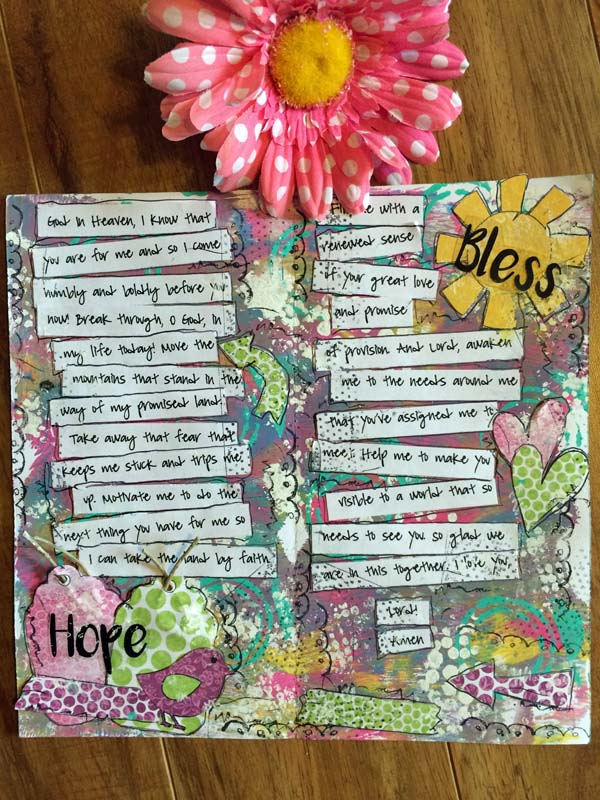 God in Heaven, I know that
you are for me and so I come
humbly and boldly before you
now! Break through, O God, in
my life today! Move the
mountains that stand in the
way of my promised land.
Take away that fear that
keeps me stuck and trips me
up. Motivate me to do the
next thing you have for me so
I can take the land by faith
Hope
with a
renewed sense
of your great love
and promise
of provision And Lord, awaken
me to the needs around me
that you've assigned me to
meet. Help me to make you
visible to a world that so
needs to see you so glad we
are in this together. I love you,
Lord!
Amen
Bless